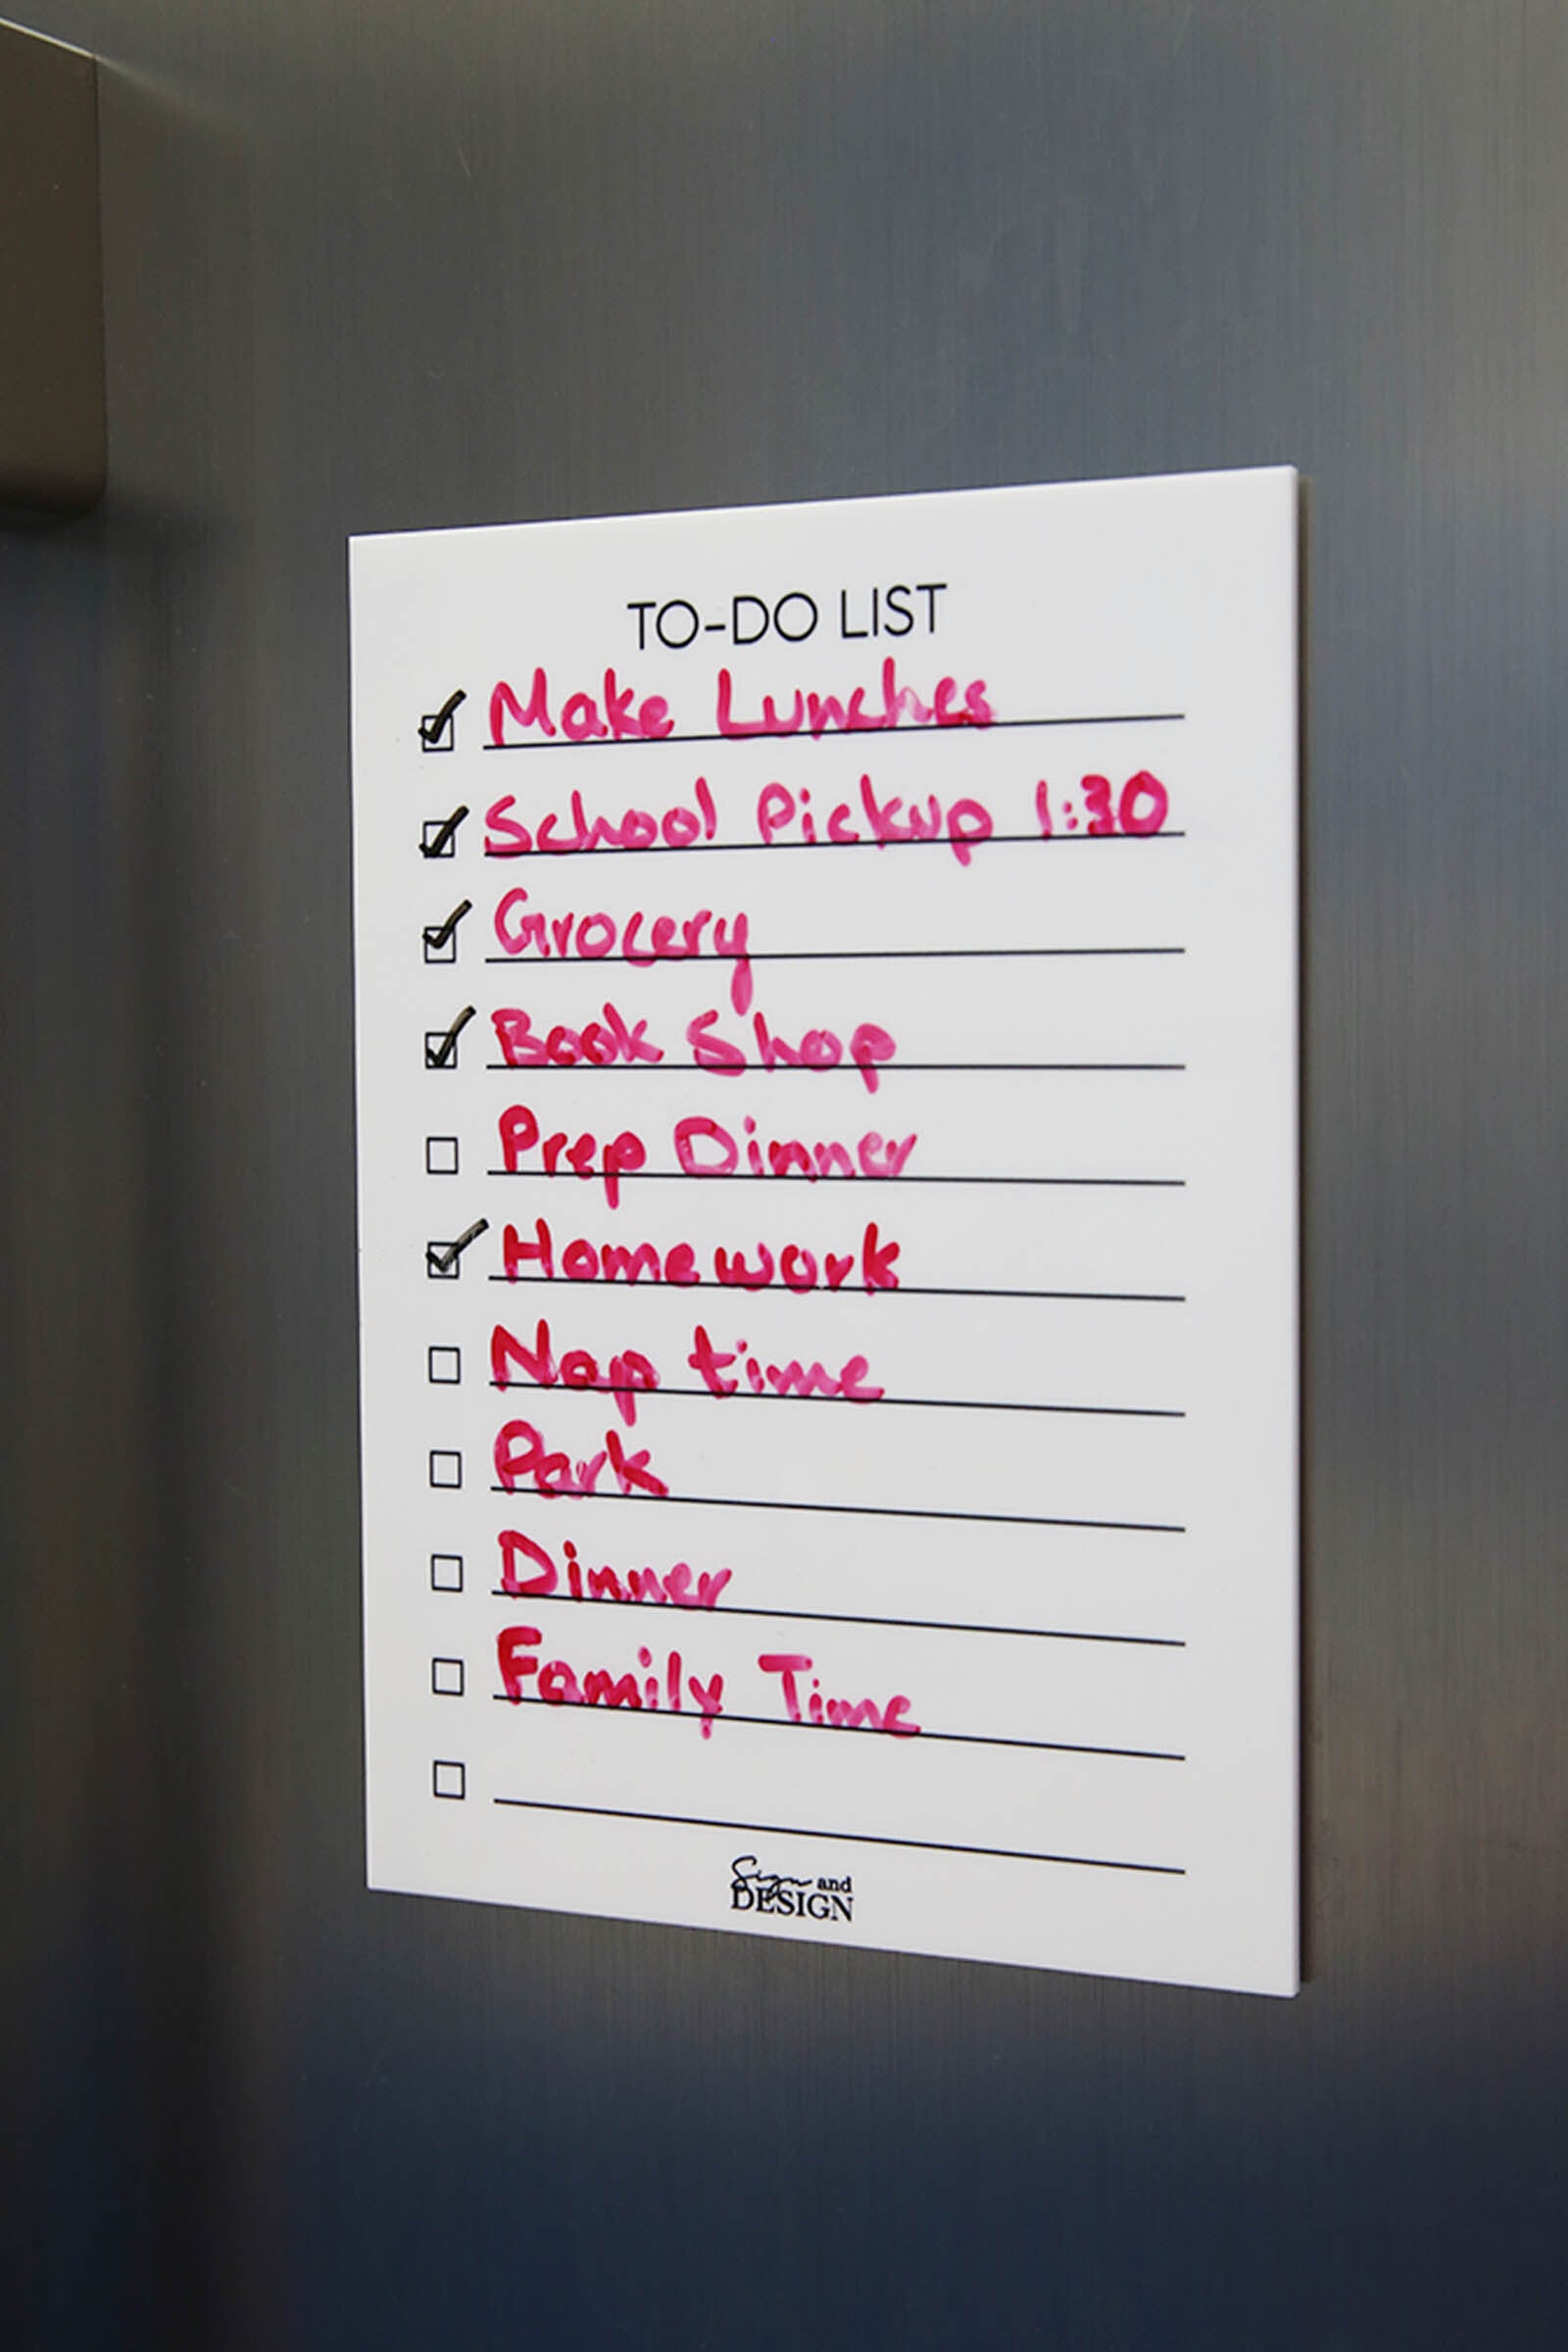 TO-DO LIST
Make Lunches
School Pickup 1:30
Grocery
Book Shop
Prep Dinner
Homework
Nap time
Park
Dinner
Family Time
Sign and
DESIGN